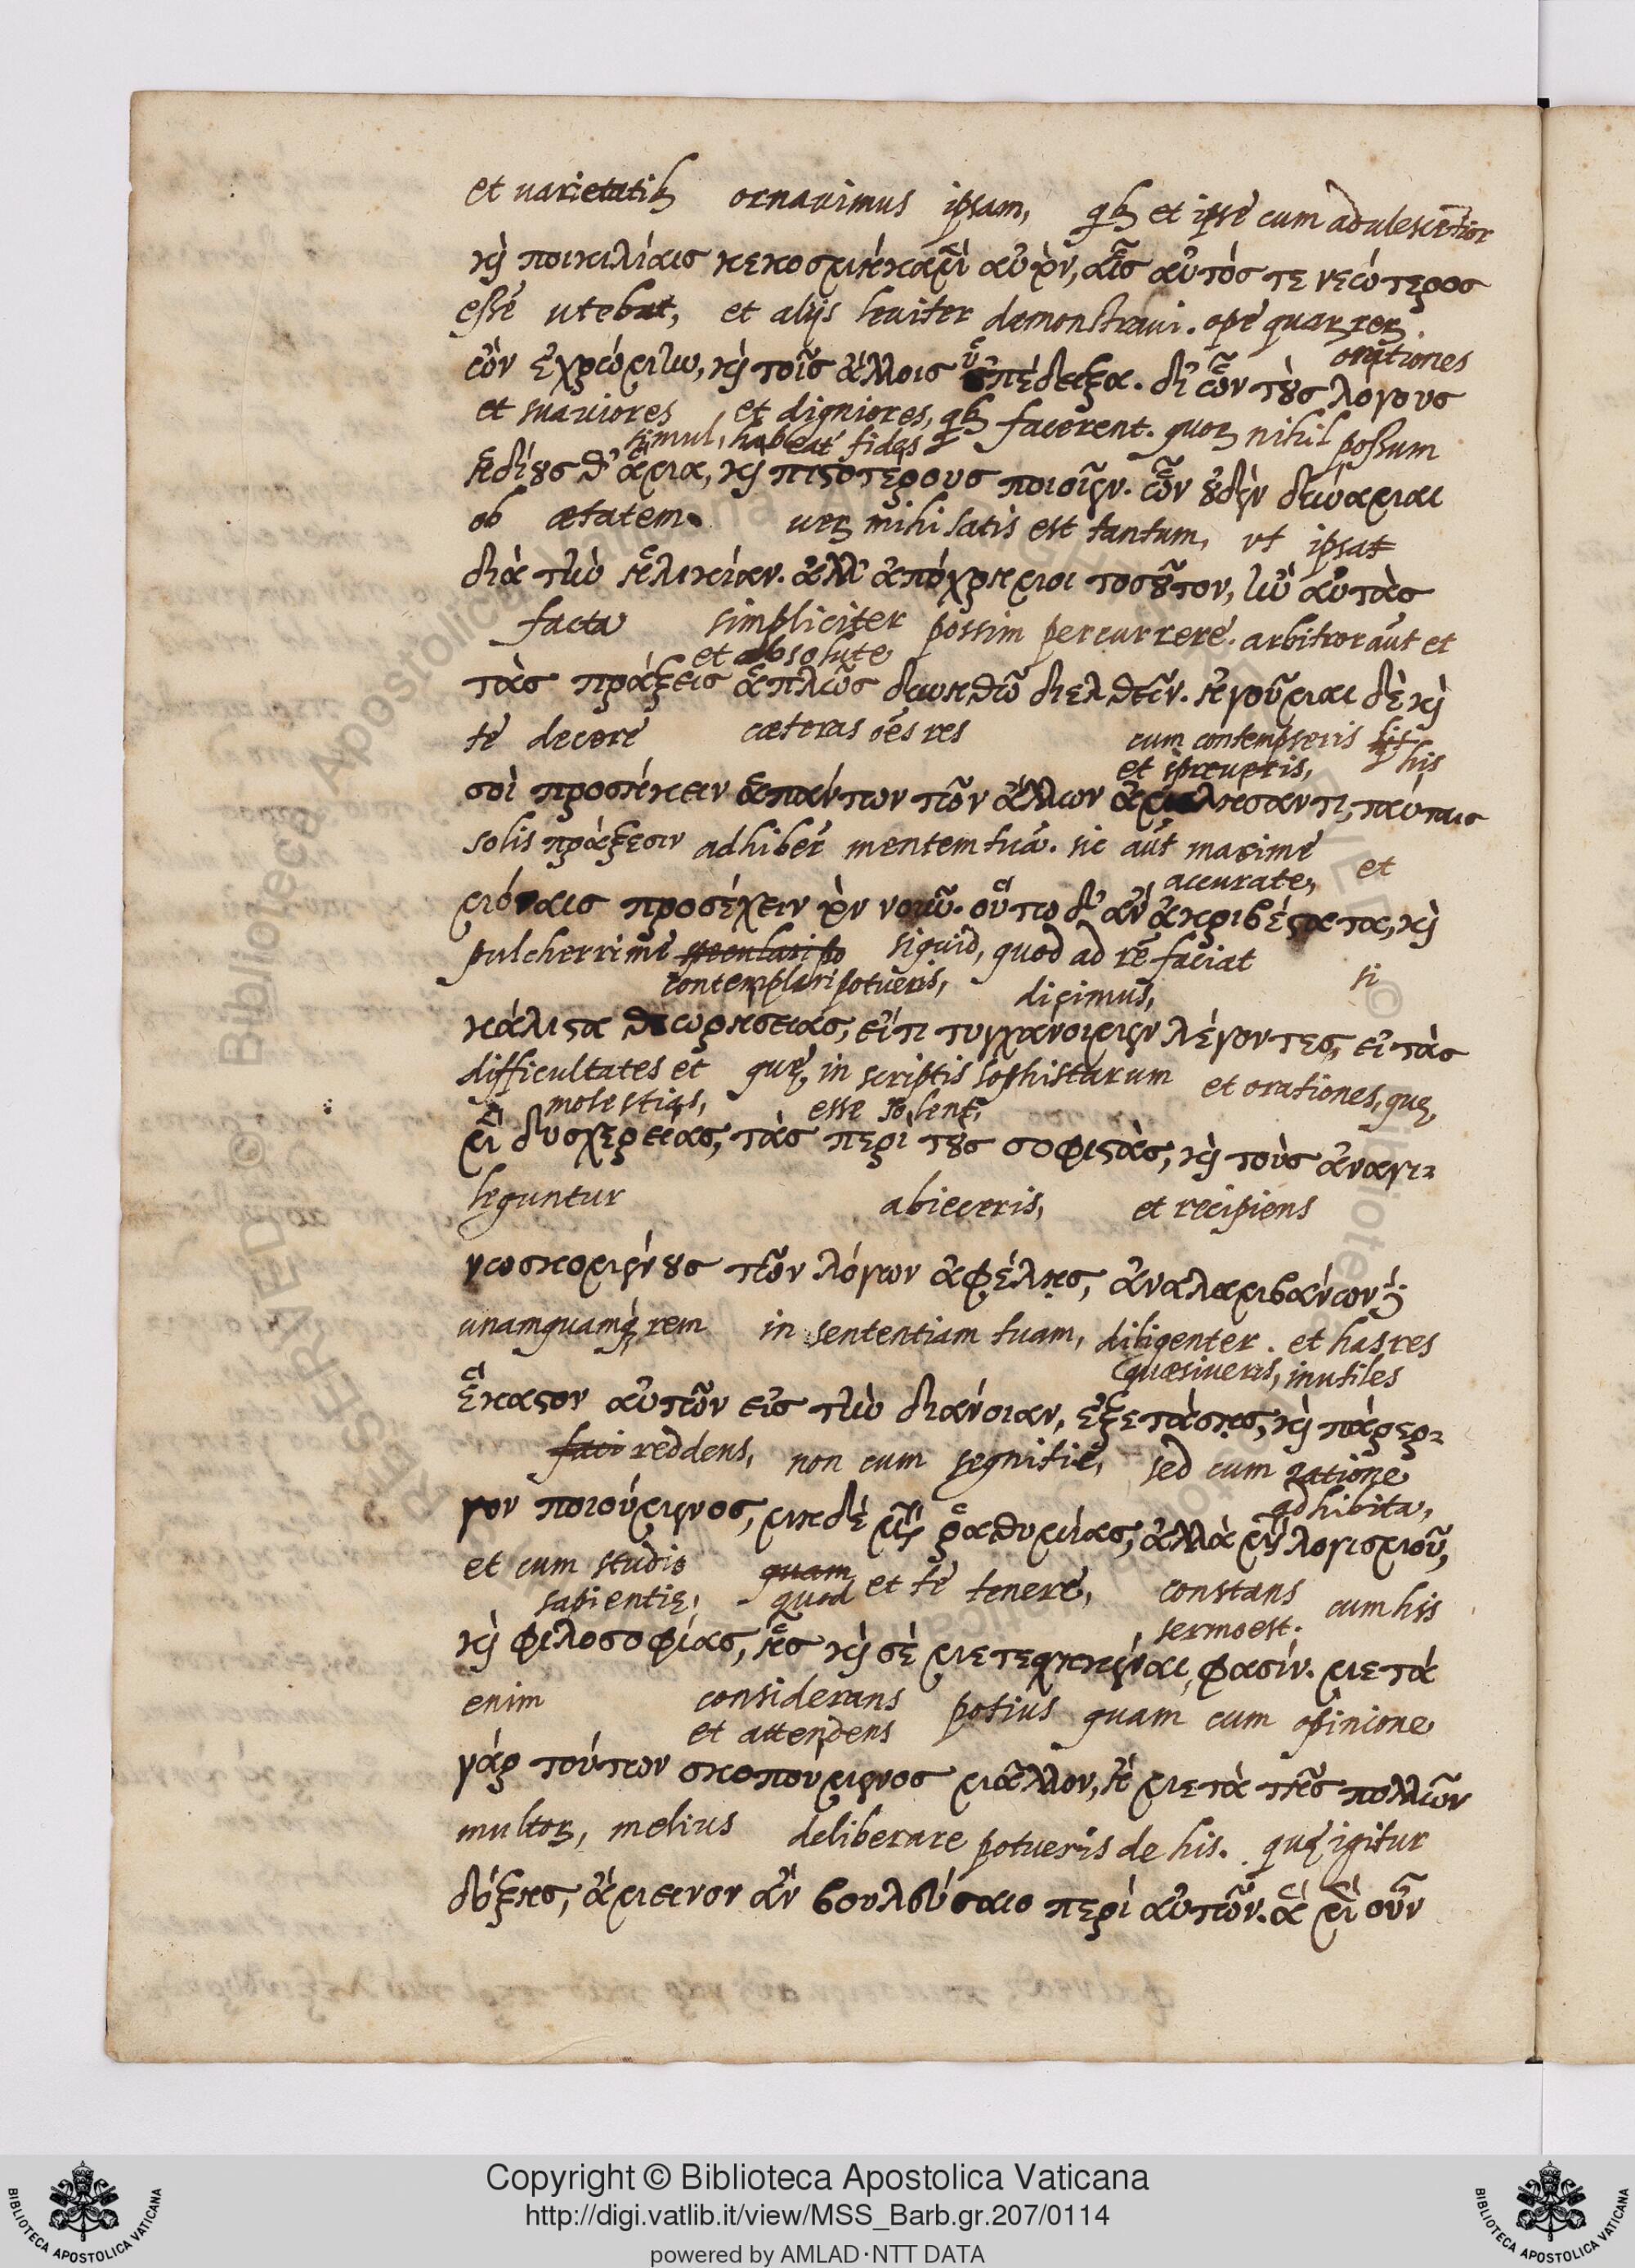 et uarietatibꝫ ornauimus ipsam, qbꝫ et ipse cum adulescētior
καὶ ποικιλίαις κεκοσμήκαμεν αὐτὴν, αἷς αὐτός τε νεώτερος
esse utebar, et alijs leuiter demonstraui. ope quarꝫ rerꝫ
orationes
ὢν ἐχρώμην, καὶ τοῖς ἄλλοις ὑπέδειξα. δι' ὧν τοὺς λόγους
et suauiores et digniores, qbꝫ facerent. quorꝫ nihil possum
simul, habeat fides
ἡδίους θ' ἅμα, καὶ πιστοτέρους ποιοῖεν. ὧν οὐδὲν δύναμαι
ob ætatem. uerꝫ mihi satis est tantum, ut ipsas
διὰ τὴν ἡλικίαν. ἀλλ' ἀπόχρη μοι τοσοῦτον, ἢν αὐτὰς
facta simpliciter possim percurrere. arbitror aūt et
et absolute
τὰς πράξεις ἁπλῶς δυνηθῶ διελθεῖν. ἡγοῦμαι δὲ καὶ
te decere cæteras oēs res cum contempseris his
et spreueris,
σοὶ προσήκειν ἁπάντων τῶν ἄλλων ἀμελήσαντι, ταύταις
solis πράξεσιν adhiberē mentem tuā. sic aūt maxime et
accurate,
μόναις προσέχειν τὸν νοῦν. οὕτω δ' ἂν ἀκριβέστατα, καὶ
pulcherrime speculari po siquid, quod ad rē faciat si
contemplari potueris, dicimus,
κάλιστα θεωρήσειας, εἴτι τυγχάνοιμεν λέγοντες, εἰ τὰς
difficultates et quę in scriptis sophistarum et orationes, quę
molestias, esse solent,
μὲν δυσχερείας, τὰς περὶ τοὺς σοφιστὰς, καὶ τοὺς ἀναγι-
leguntur abieceris, et recipiens
γνωσκομένους τῶν λόγων ἀφέλῃς, ἀναλαμβάνων δ'
unamquamqꝫ rem in sententiam tuam, diligenter. et has res
quæsiueris, inutiles
ἕκαστον αὐτῶν εἰς τὴν διάνοιαν, ἐξετάσῃς, καὶ πάρερ-
faci reddens, non cum segnitie, sed cum ratione
adhibita,
γον ποιούμενος, μηδὲ μετὰ ῥαθυμίας, ἀλλὰ μετὰ λογισμοῦ,
et cum studio quam et te tenere, constans cum his
sapientię, quod sermo est.
καὶ φιλοσοφίας, ἧς καὶ σὲ μετεσχηκέναι, φασίν. μετὰ
enim considerans potius quam cum opinione
et attendens
γάρ τούτων σκοπούμενος μᾶλλον, ἢ μετὰ τῆς πολλῶν
multorꝫ, melius deliberare potueris de his. quę igitur
δόξης, ἄμεινον ἂν βουλεύσαιο περὶ αὐτῶν. ἃ μὲν οὖν
Copyright © Biblioteca Apostolica Vaticana
http://digi.vatlib.it/view/MSS_Barb.gr.207/0114
powered by AMLAD·NTT DATA